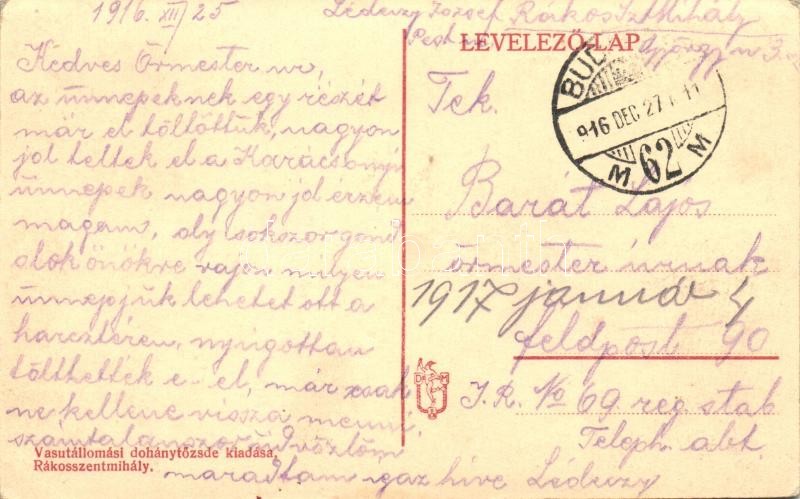 1916. XII/25
Kedves Örmester ur,
az ünnepeknek egy részét
már el töltöttük, nagyon
jol teltek el a Karácsonyi
ünnepek nagyon jol érzem
magam, oly sokszor gond
olok önökre vajon milyen
ünnepjük lehetet ott a
harcztéren, nyugottan
tölthették e el, már csak
ne kellene vissza menni,
számtalanszor üdvözlöm
maradtam igaz híve Léderzy
Vasutállomási dohánytőzsde kiadása,
Rákosszentmihály.
József Rákos Szt Mihály
Pest
György u 3.
LEVELEZŐ-LAP
BUD
916 DEC 27
M 62 M
Tek.
Barát Lajos
örmester úrnak
1917 január 4
feldpost 90
D M
I. R. No 69. reg. stab
Teleph. abt.